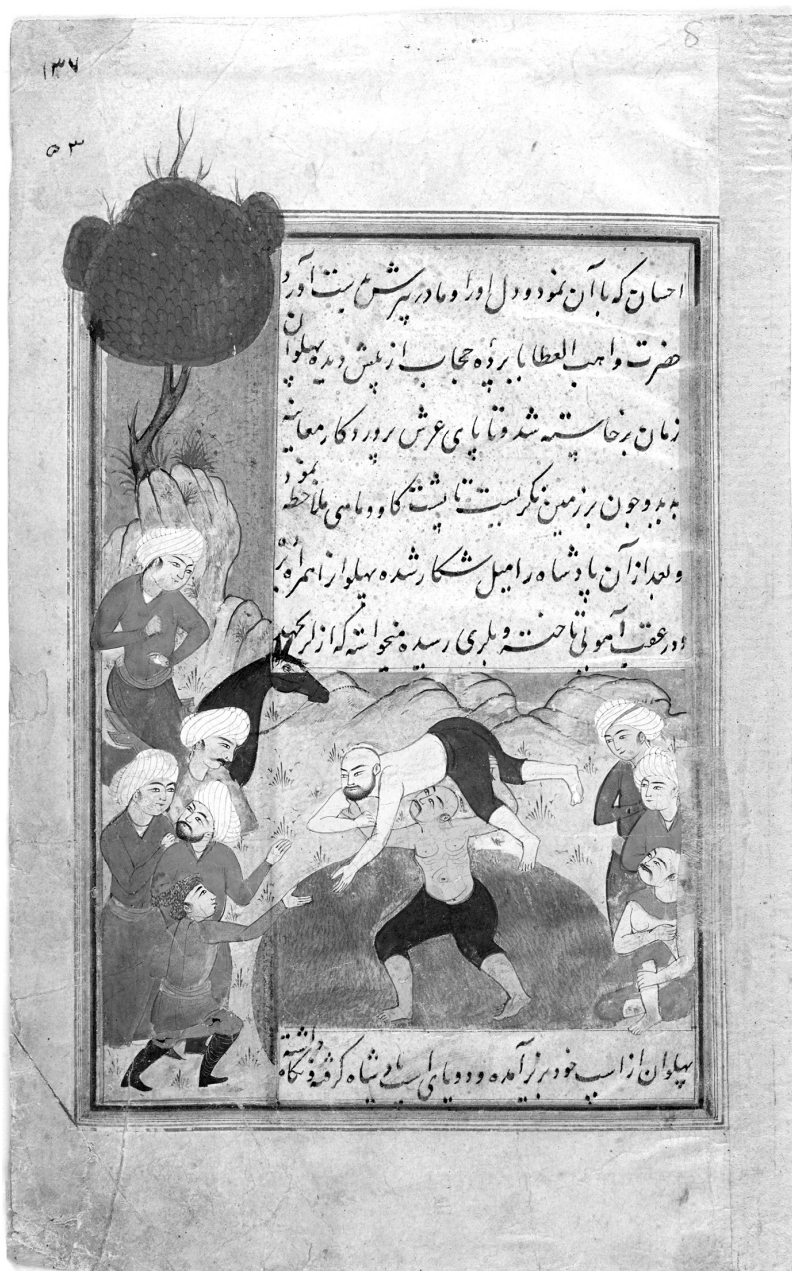 ۱۳۷
۵۳
8
احسان که با آن نمود و دل او را و مادر پیرش بدست آورد
حضرت واهب العطایا پرده حجاب از پیش دیده پهلوان
زمان برخاسته شد و تا پای عرش پروردکار معاینه
بدید و چون بر زمین نکریست تا پشت کاو و ماهی ملاحظه نمود
و بعد از آن پادشاه را میل شکار شده پهلوانرا همراه برده
و در عقب آهویی تاخته و بلری رسیده میخواسته که از لر بجهد
پهلوان از اسب خود بزیر آمده و دو پای اسب پادشاه کرفته و نکاه داشته